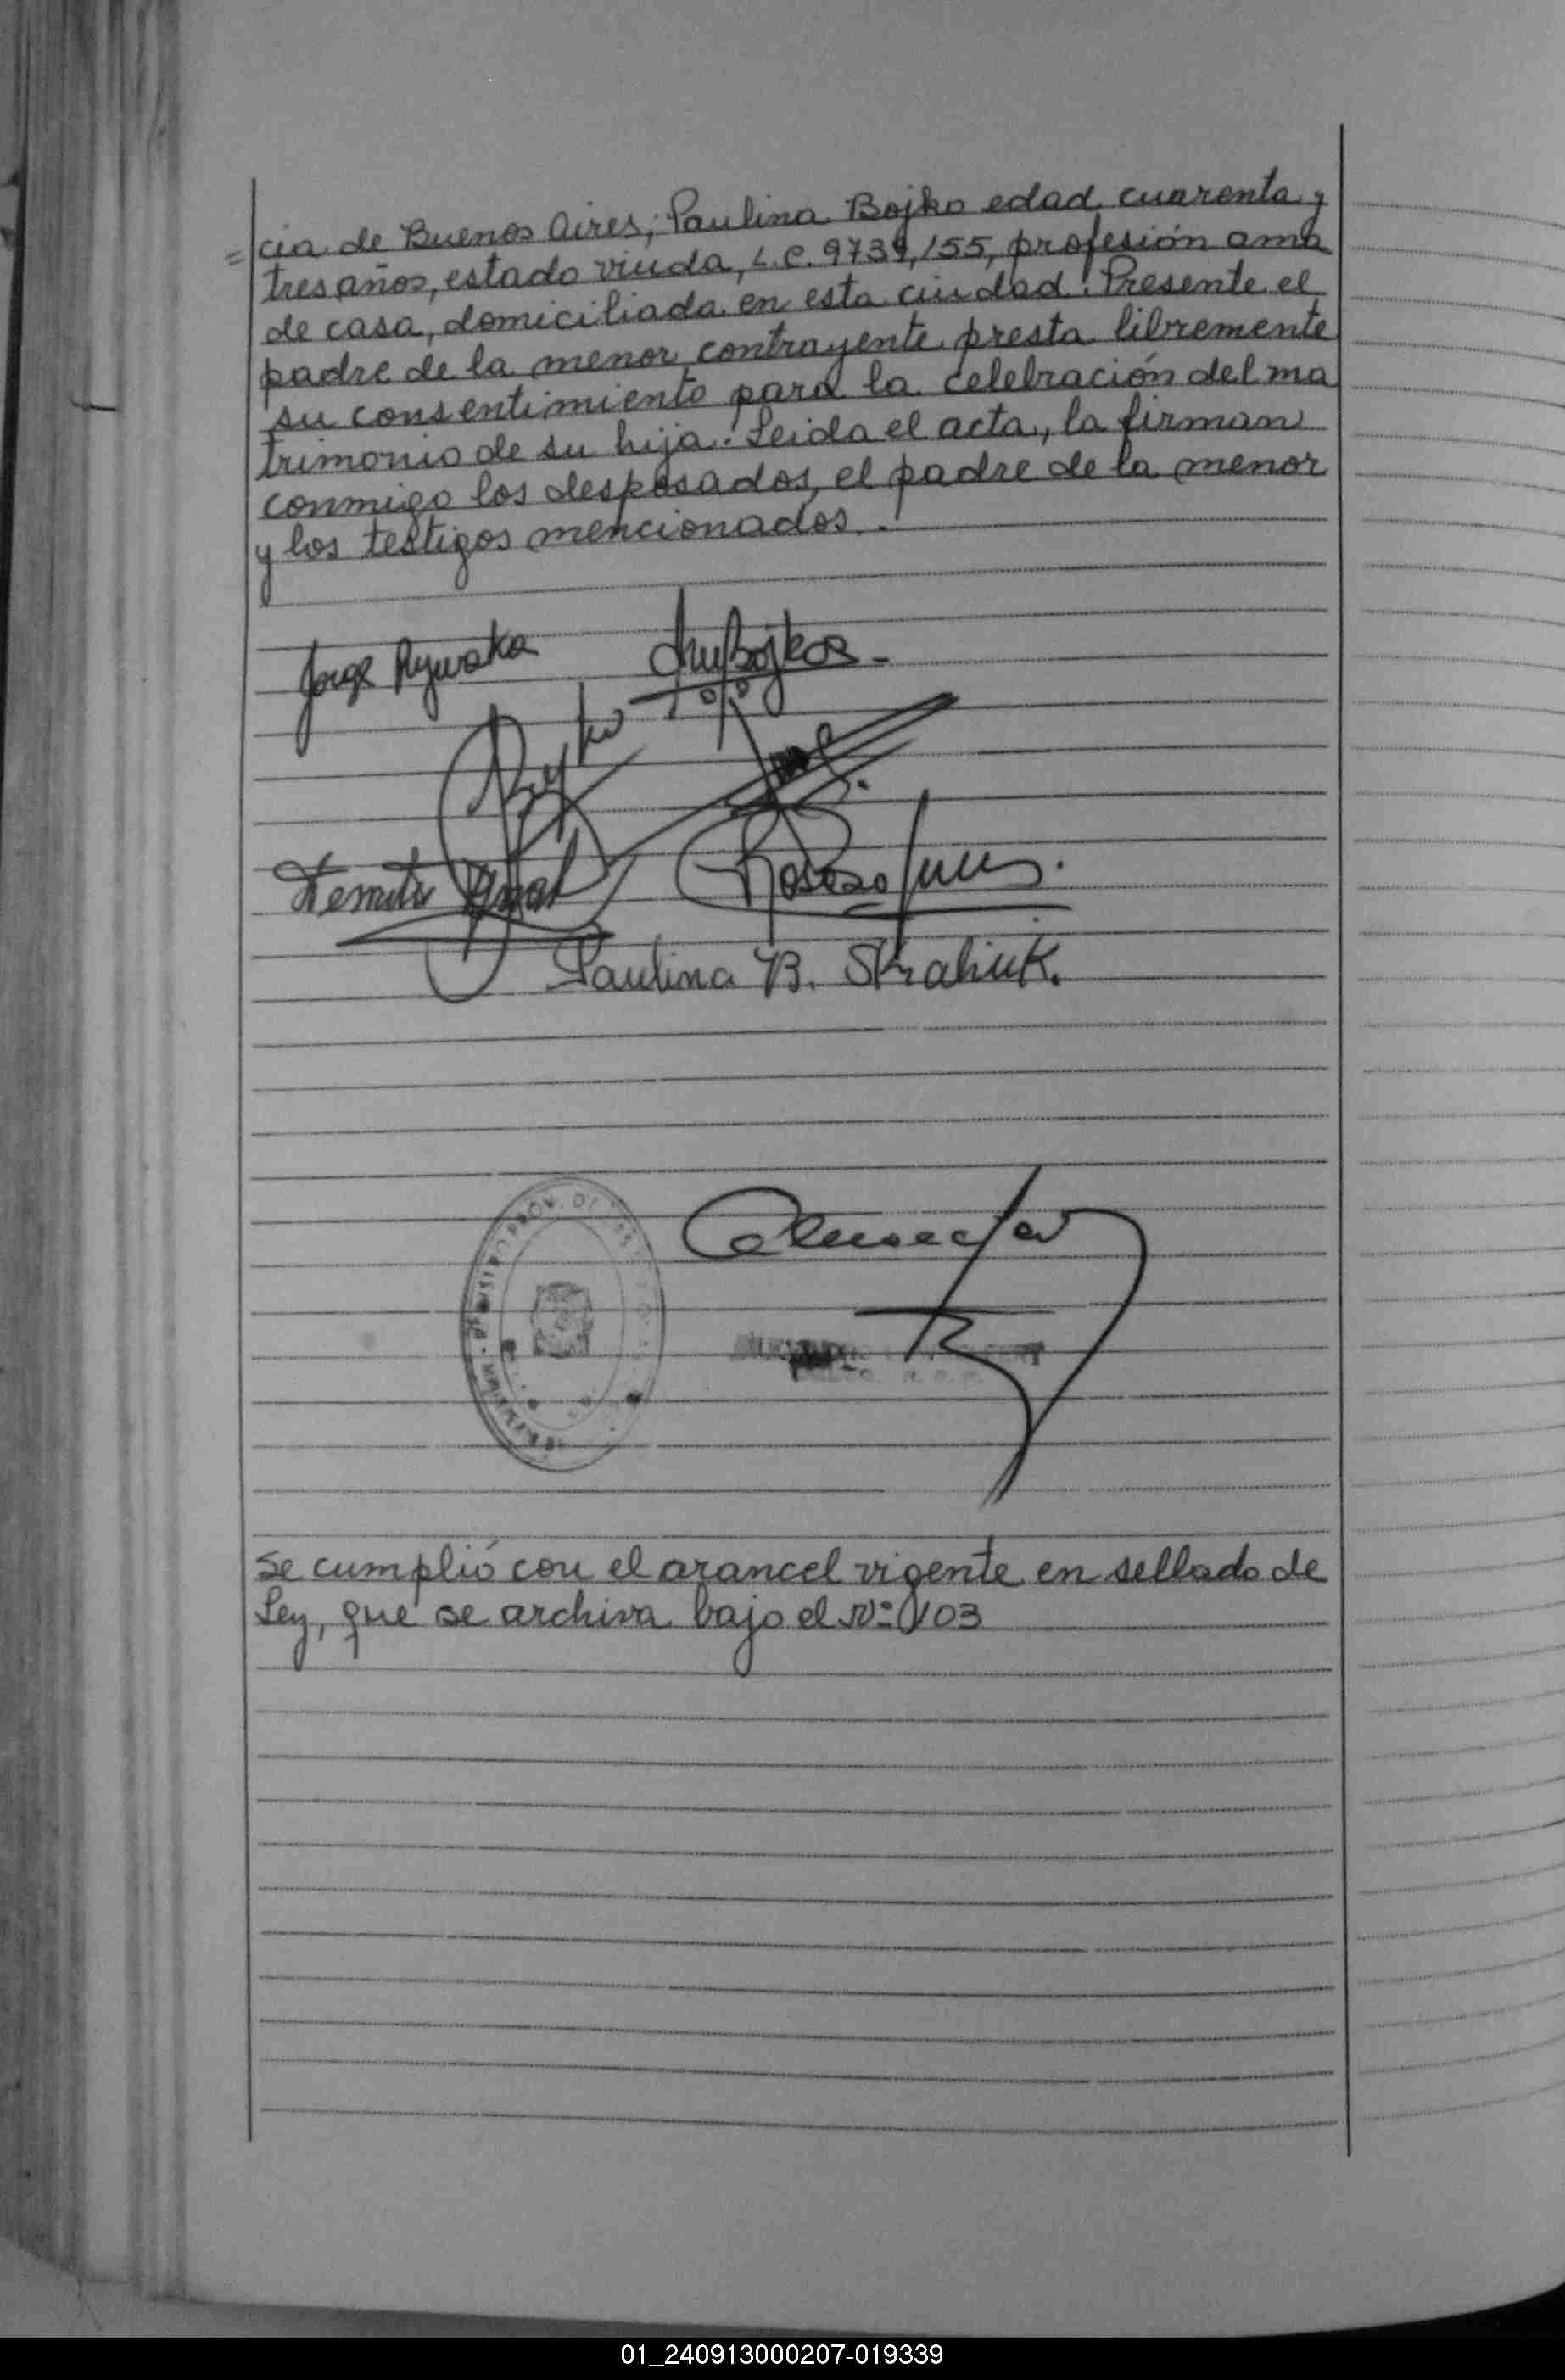 =cia de Buenos Aires; Paulina Bojko edad cuarenta y
tres años, estado viuda, L.C. 9739,155, profesión ama
de casa, domiciliada en esta ciudad. Presente el
padre de la menor contrayente presta libremente
su consentimiento para la celebración del ma
trimonio de su hija. Leida el acta, la firman
conmigo los desposados, el padre de la menor
y los testigos mencionados.
Jorge
Paulina B. Skraliuk.
Se cumplió con el arancel vigente en sellado de
Ley, que se archiva bajo el Nº 103
01_240913000207-019339